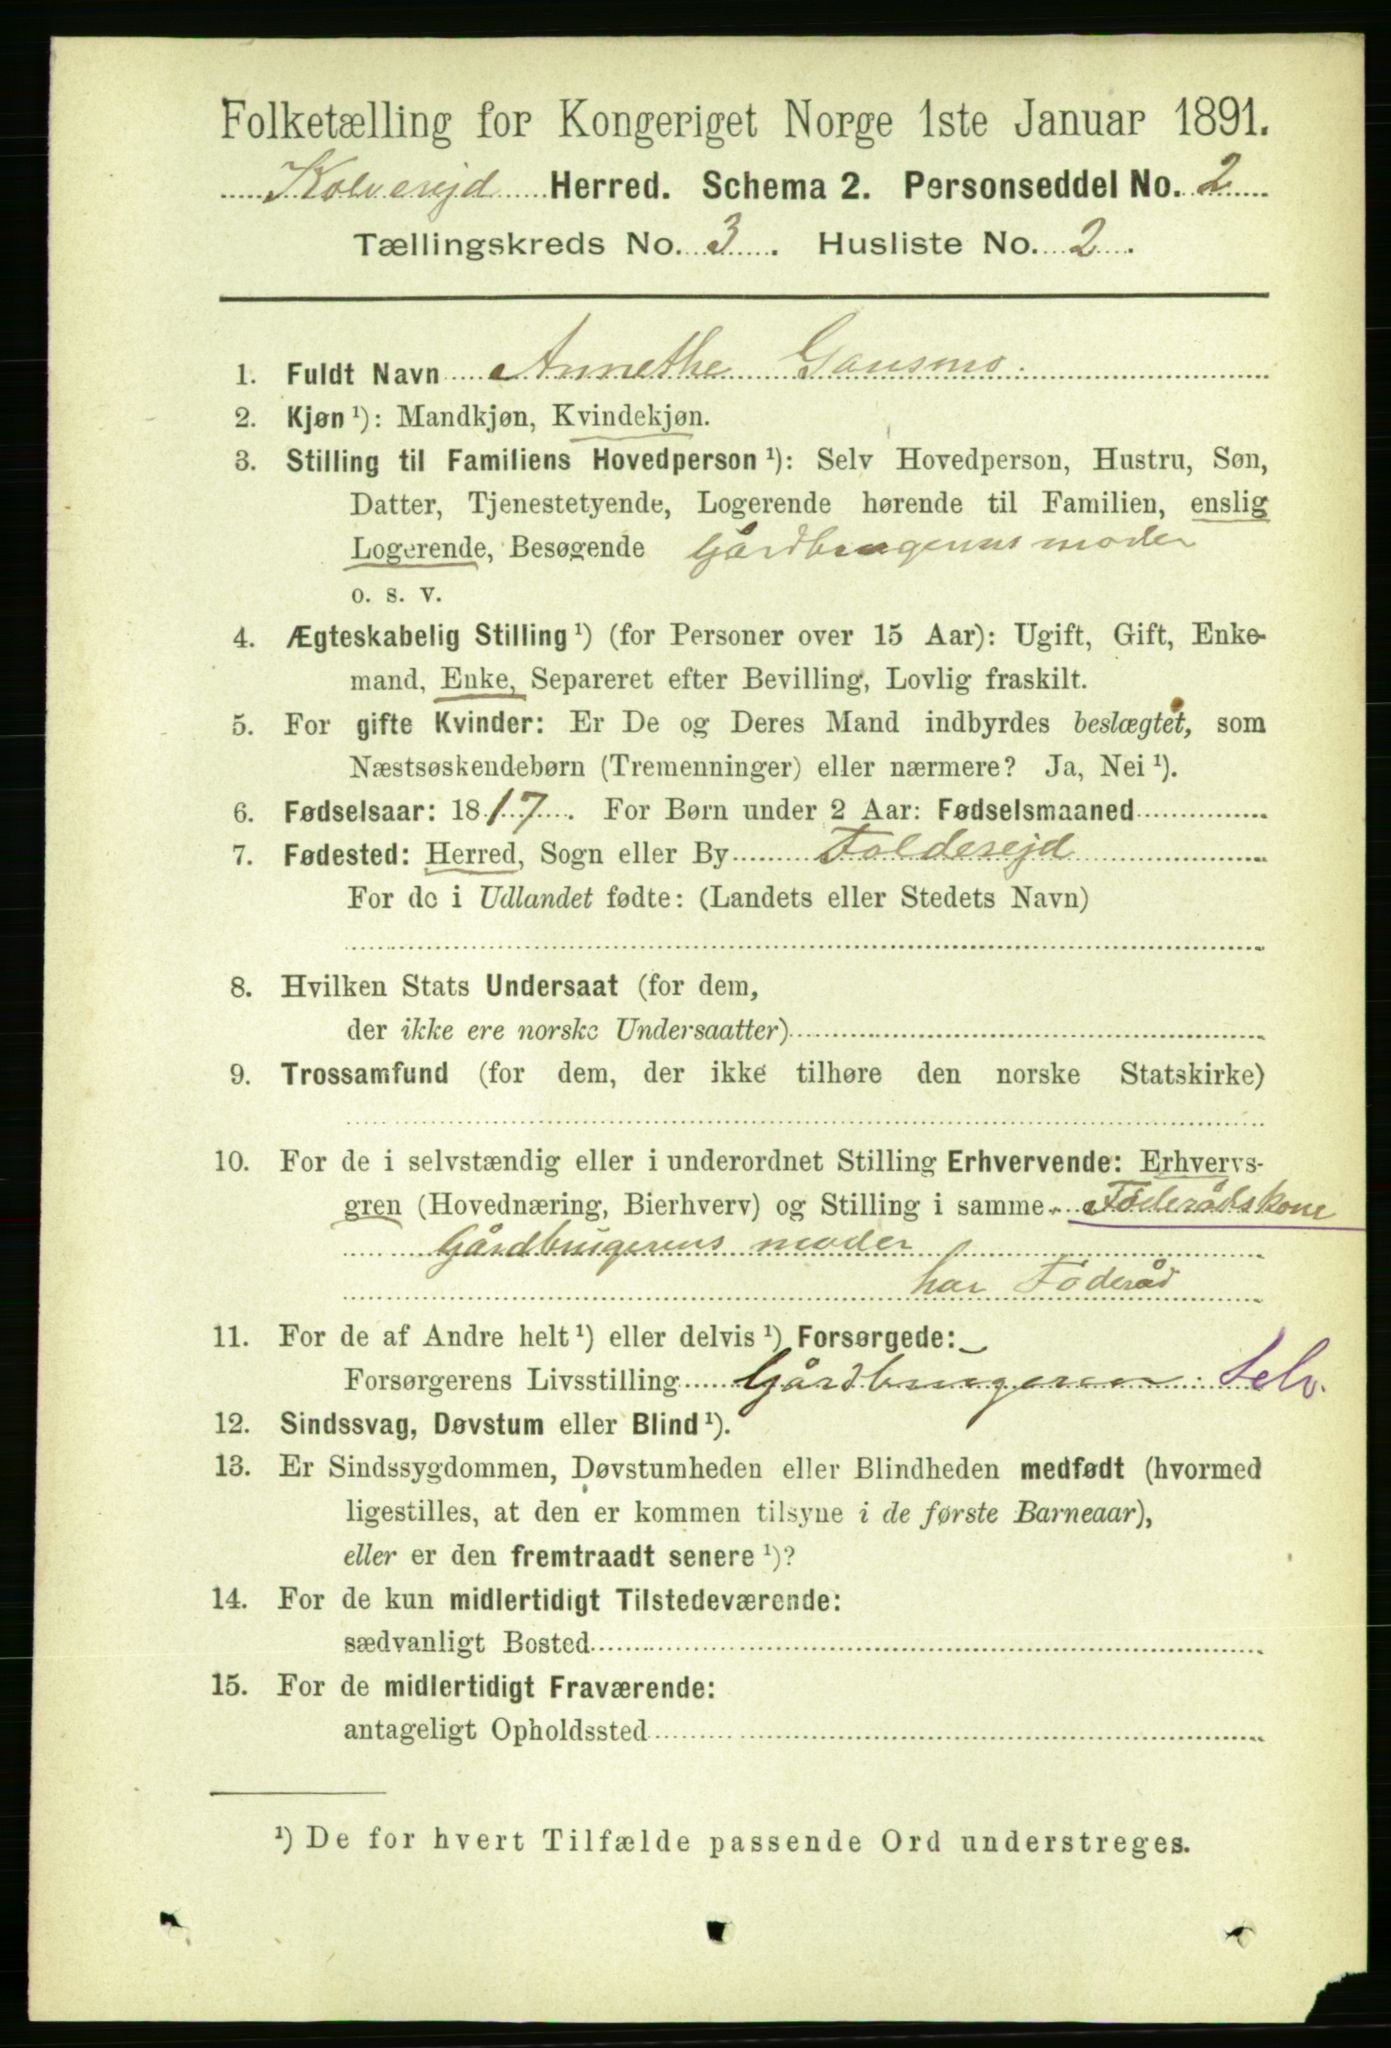 Folketælling for Kongeriget Norge 1ste Januar 1891.
Kolverejd Herred. Schema 2. Personseddel No. 2
Tællingskreds No. 3. Husliste No. 2.
1. Fuldt Navn Annethe Gansmo.
2. Kjøn ¹): Mandkjøn, Kvindekjøn.
3. Stilling til Familiens Hovedperson ¹): Selv Hovedperson, Hustru, Søn,
Datter, Tjenestetyende, Logerende hørende til Familien, enslig
Logerende, Besøgende Gårdbrugerens moder
o. s. v.
4. Ægteskabelig Stilling ¹) (for Personer over 15 Aar): Ugift, Gift, Enke-
mand, Enke, Separeret efter Bevilling, Lovlig fraskilt.
5. For gifte Kvinder: Er De og Deres Mand indbyrdes beslægtet, som
Næstsøskendebørn (Tremenninger) eller nærmere? Ja, Nei ¹).
6. Fødselsaar: 1817. For Børn under 2 Aar: Fødselsmaaned
7. Fødested: Herred, Sogn eller By Folderejd
For de i Udlandet fødte: (Landets eller Stedets Navn)
8. Hvilken Stats Undersaat (for dem,
der ikke ere norske Undersaatter)
9. Trossamfund (for dem, der ikke tilhøre den norske Statskirke)
10. For de i selvstændig eller i underordnet Stilling Erhvervende: Erhvervs-
gren (Hovednæring, Bierhverv) og Stilling i samme Føderådskone
Gårdbrugerens moder
har Føderåd
11. For de af Andre helt ¹) eller delvis ¹) Forsørgede:
Forsørgerens Livsstilling Gårdbrugeren. Selv.
12. Sindssvag, Døvstum eller Blind ¹).
13. Er Sindssygdommen, Døvstumheden eller Blindheden medfødt (hvormed
ligestilles, at den er kommen tilsyne i de første Barneaar),
eller er den fremtraadt senere ¹)?
14. For de kun midlertidigt Tilstedeværende:
sædvanligt Bosted
15. For de midlertidigt Fraværende:
antageligt Opholdssted
¹) De for hvert Tilfælde passende Ord understreges.